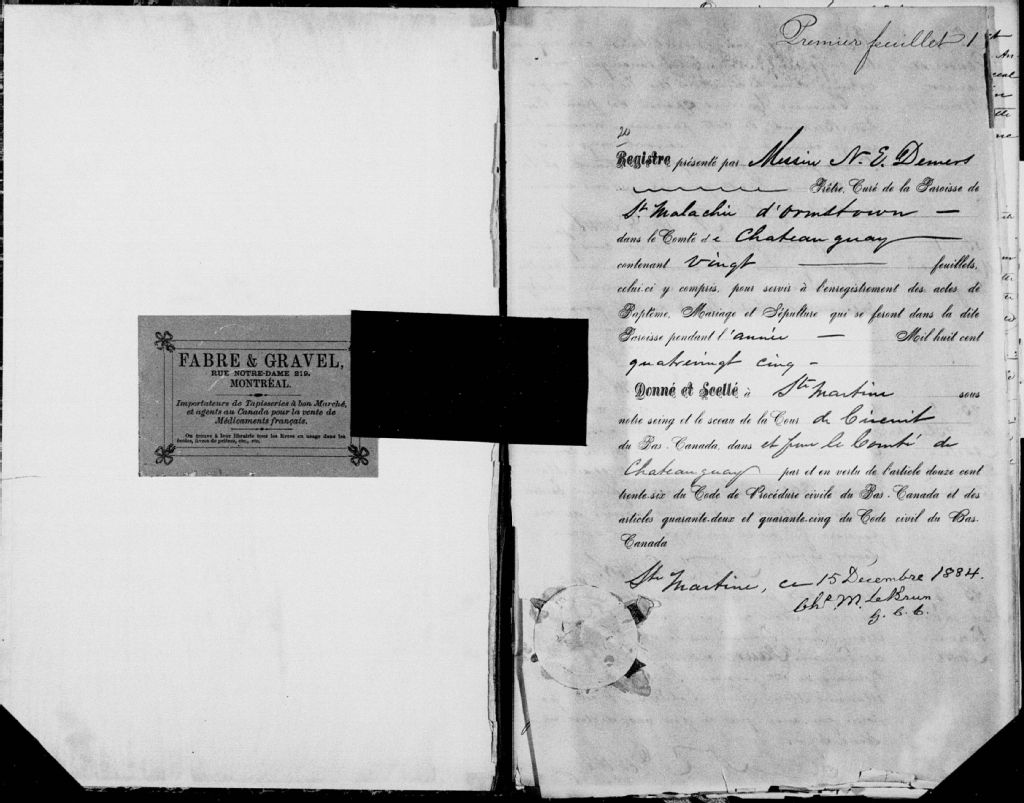 FABRE & GRAVEL,
RUE NOTRE-DAME 219.
MONTRÉAL.
Importateurs de Tapisseries à bon Marché,
et agents au Canada pour la vente de
Médicaments français.
On trouve à leur librairie tous les livres en usage dans les
écoles, livres de prières, etc., etc.
Premier feuillet 1
Registre présenté par Messire N. E. Demers
Prêtre, Curé de la Paroisse de
St. Malachie d'Ormstown —
dans le Comté de Chateauguay
contenant vingt feuillets,
celui-ci y compris, pour servir à l'enregistrement des actes de
Baptême, Mariage et Sépulture qui se feront dans la dite
Paroisse pendant l'année — Mil huit cent
quatrevingt cinq -
Donné et Scellé à Ste Martine sous
notre seing et le sceau de la Cour de Circuit
du Bas-Canada, dans et pour le Comté de
Chateauguay par et en vertu de l'article douze cent
trente-six du Code de Procédure civile du Bas-Canada et des
articles quarante-deux et quarante-cinq du Code civil du Bas-
Canada
Ste Martine, ce 15 Décembre 1884.
M. LeBrun
C. C.